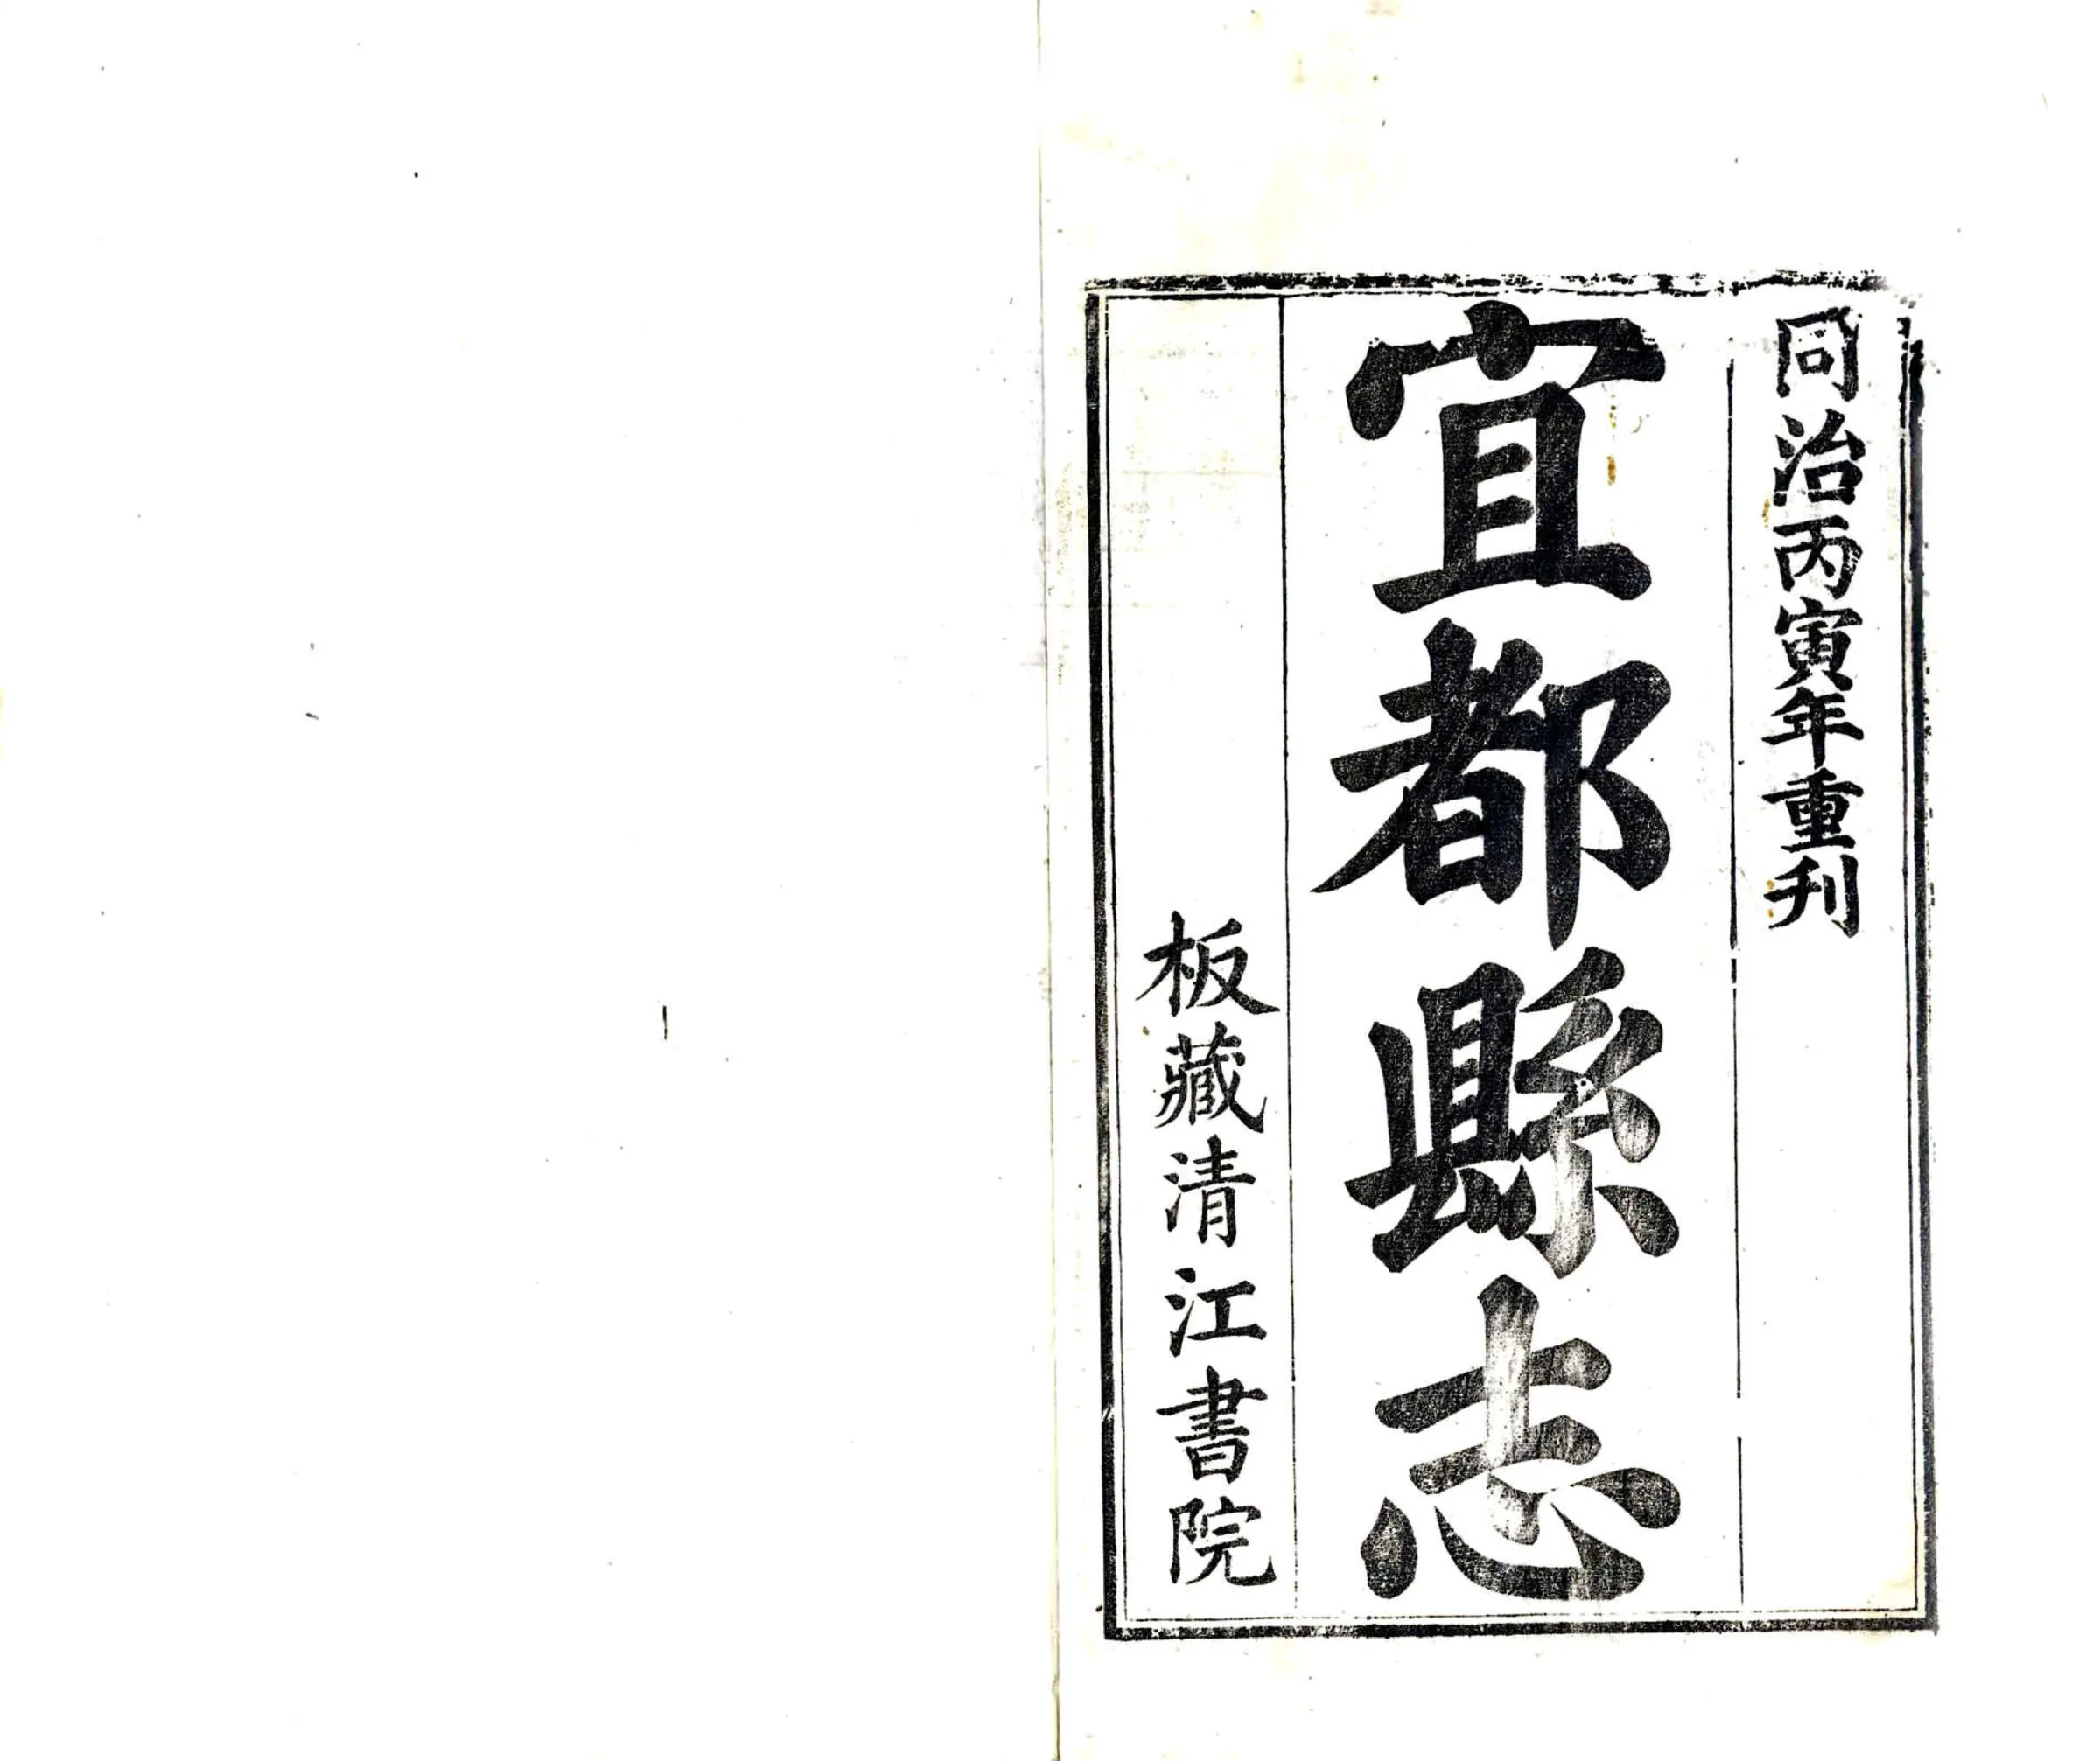 同治丙寅年重刊
宜都縣志
板藏清江書院